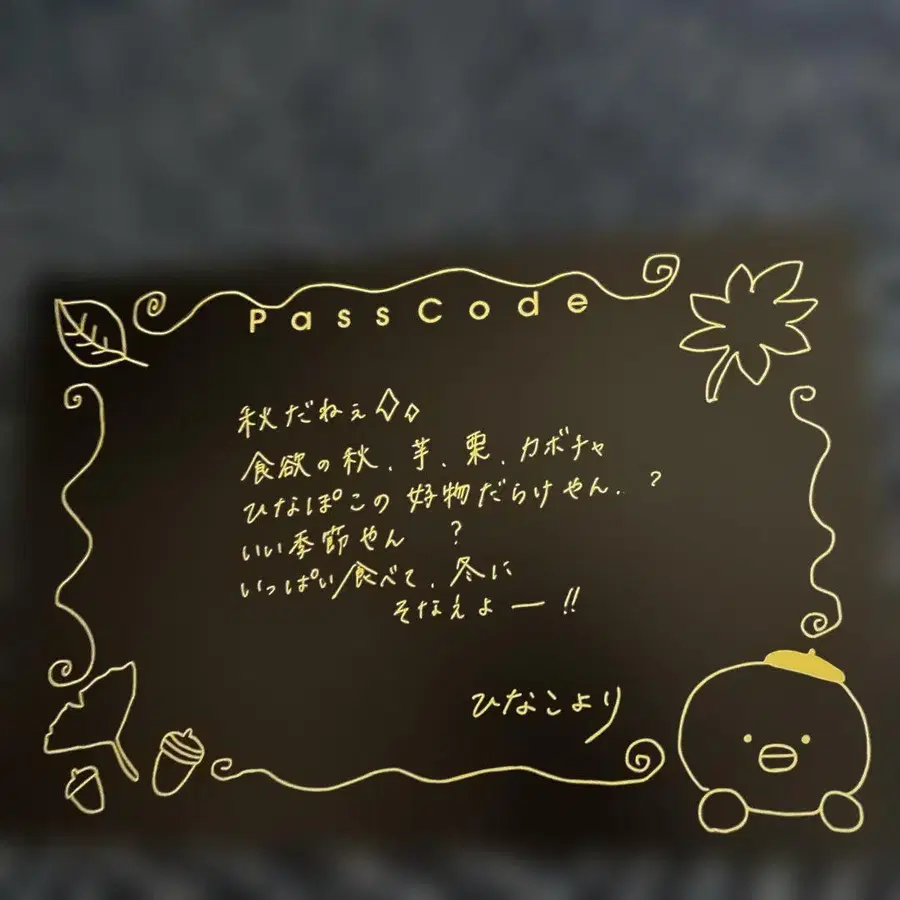 PassCode
秋だねぇ
食欲の秋、芋、栗、カボチャ
ひなぽこの好物だらけやん、?
いい季節やん ?
いっぱい食べて、冬に
そなえよー!!
ひなこより